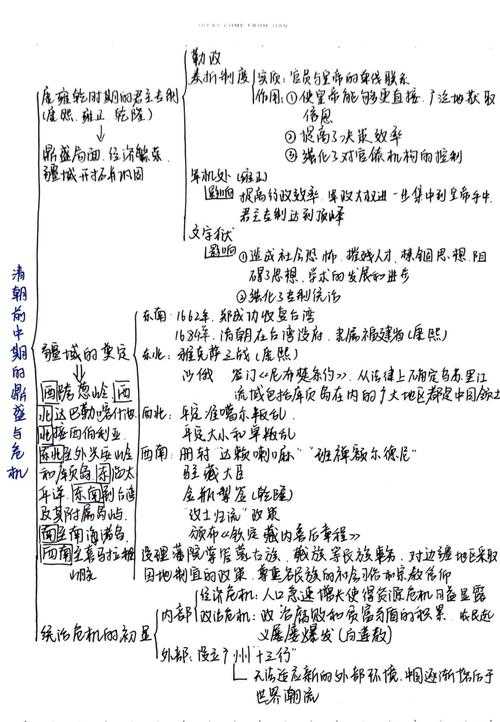 清朝前中期的鼎盛与危机
康雍乾时期的君主专制
(康熙、雍正、乾隆)
鼎盛局面:经济繁荣、
疆域开拓与巩固
勤政
奏折制度
实质:官员与皇帝的单线联系
作用:①使皇帝能够更直接、广泛地获取
信息
②提高了决策效率
③强化了对官僚机构的控制
军机处(雍正)
影响
提高行政效率,军政大权进一步集中到皇帝手中
君主专制达到顶峰
文字狱
影响
①造成社会恐怖、摧残人才、禁锢思想、阻
碍了思想、学术的发展和进步
②强化了专制统治
疆域的奠定
西跨葱岭、西
北达巴勒喀什池
北接西伯利亚
东北至外兴安岭
和库页岛东临太
平洋、东南到台湾
及其附属岛屿
南至南海诸岛
西南至喜马拉雅
山脉
东南:1662年,郑成功收复台湾
1684年,清朝在台湾设府,隶属福建省(康熙)
东北:雅克萨之战(康熙)
沙俄 签订《尼布楚条约》,从法律上确定乌苏里江
流域包括库页岛在内的广大地区都是中国领土
西北:平定准噶尔叛乱
平定大小和卓叛乱
西南:册封"达赖喇嘛""班禅额尔德尼"
驻藏大臣
金瓶掣签(乾隆)
"改土归流"政策
颁布《钦定藏内善后章程》
设理藩院掌管蒙古族、藏族等民族事务,对边疆地区采取
因地制宜的政策,尊重各民族的和宗教信仰
统治危机的初显
内部
经济危机:人口急速增长使得资源危机日益显露
政治危机:政治腐败和贫富方面的积累,农民起
义屡屡爆发(白莲教)
外部:设立广州"十三行"
无法适应新的外部环境,中国逐渐落后于
世界潮流